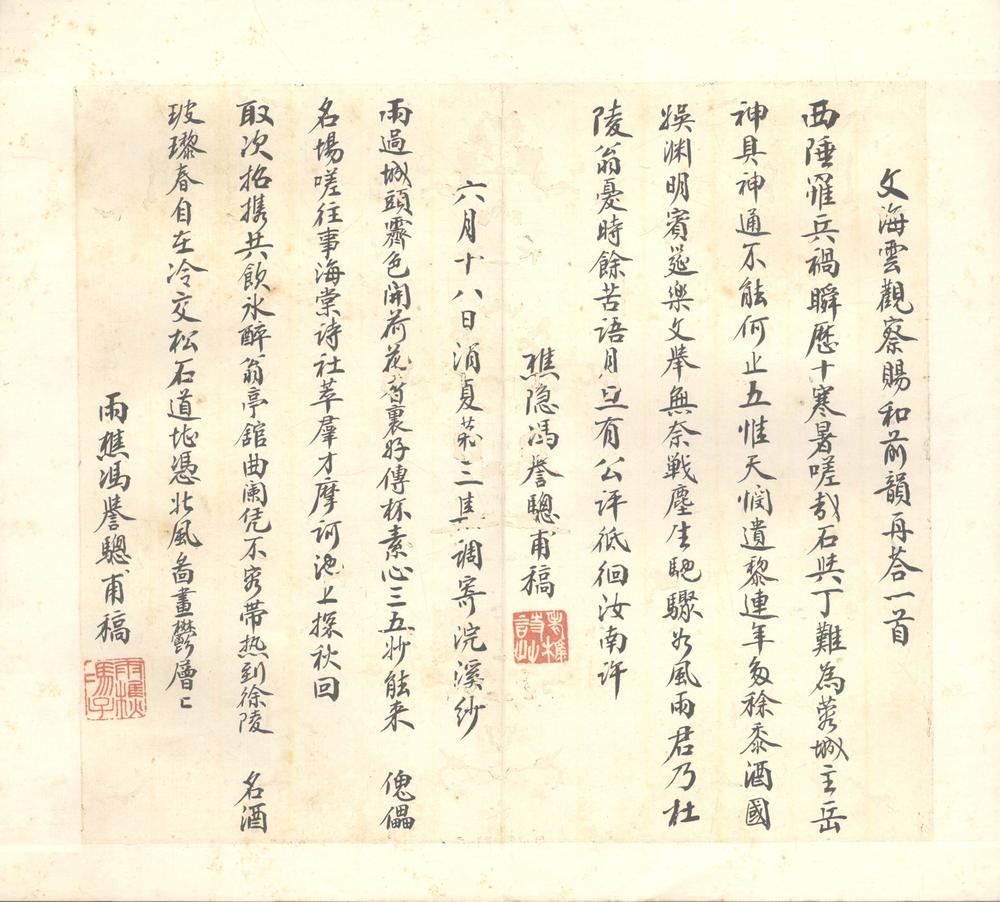 文海雲觀察賜和前韻再荅一首
西陲罹兵禍瞬歷十寒暑嗟哉石與丁難為蓉城主岳
神具神通不能何止五惟天憫遺黎連年多稌黍酒國
娛淵明賓筵樂文舉無奈戰塵生馳驟如風雨君乃杜
陵翁憂時餘苦語月旦有公評低徊汝南許
樵隱馮譽驄甫稿
六月十八日消夏第三集調寄浣溪紗
雨過城頭霽色開荷花香裏好傳杯素心三五妙能来 傀儡
名場嗟往事海棠詩社萃羣才摩訶池上探秋回
取次招攜共飲冰醉翁亭舘曲闌凭不容带热到徐陵 名酒
玻瓈春自在冷交松石道堪憑北風畵畫鬱層〻
雨樵馮譽驄甫稿
雨樵